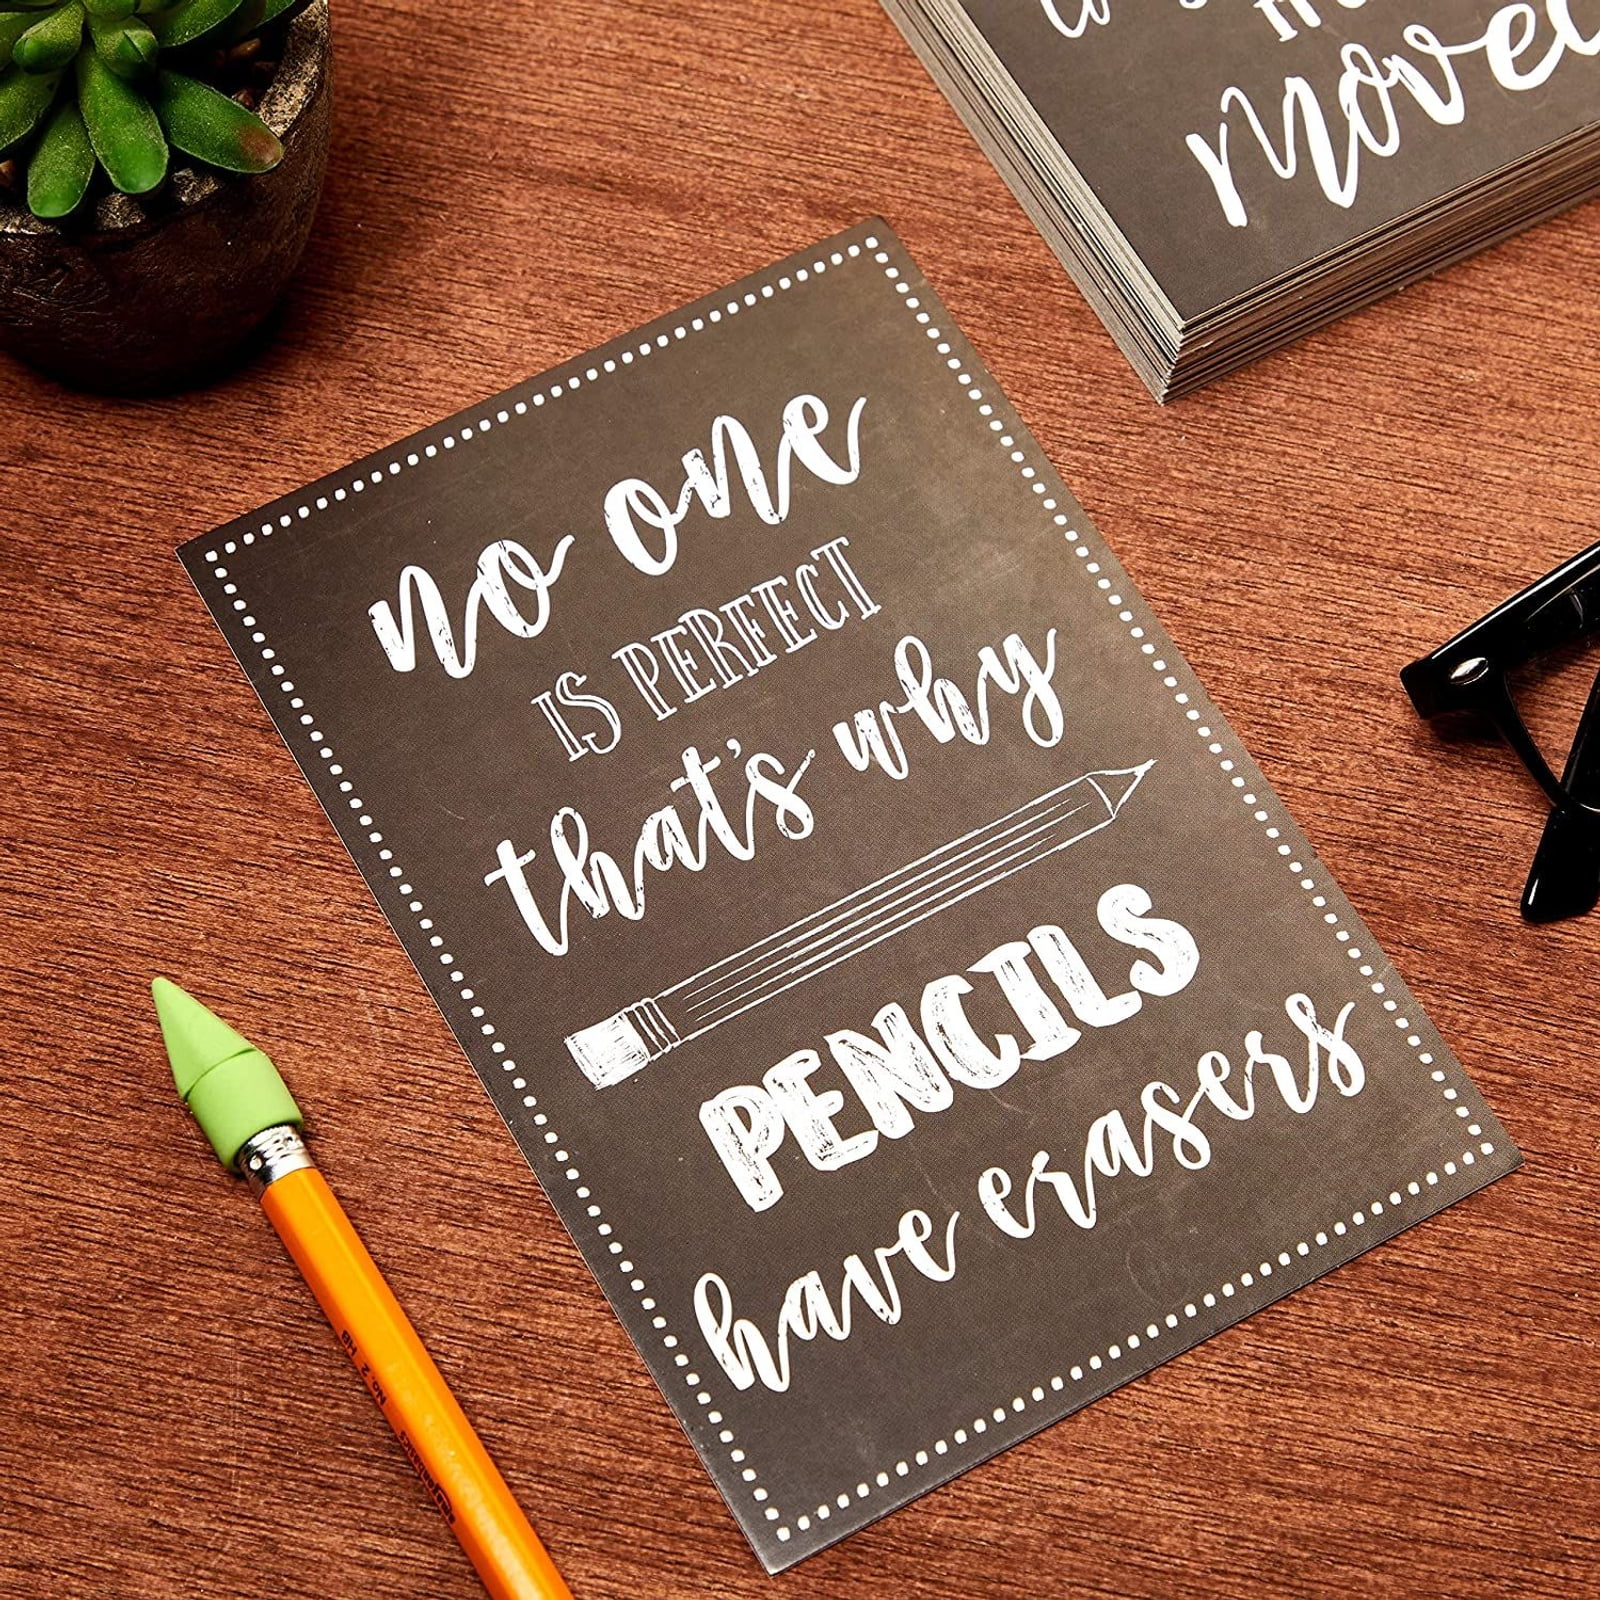 no one
IS PERFECT
that's why
PENCILS
have erasers
moved
No. 2 HB